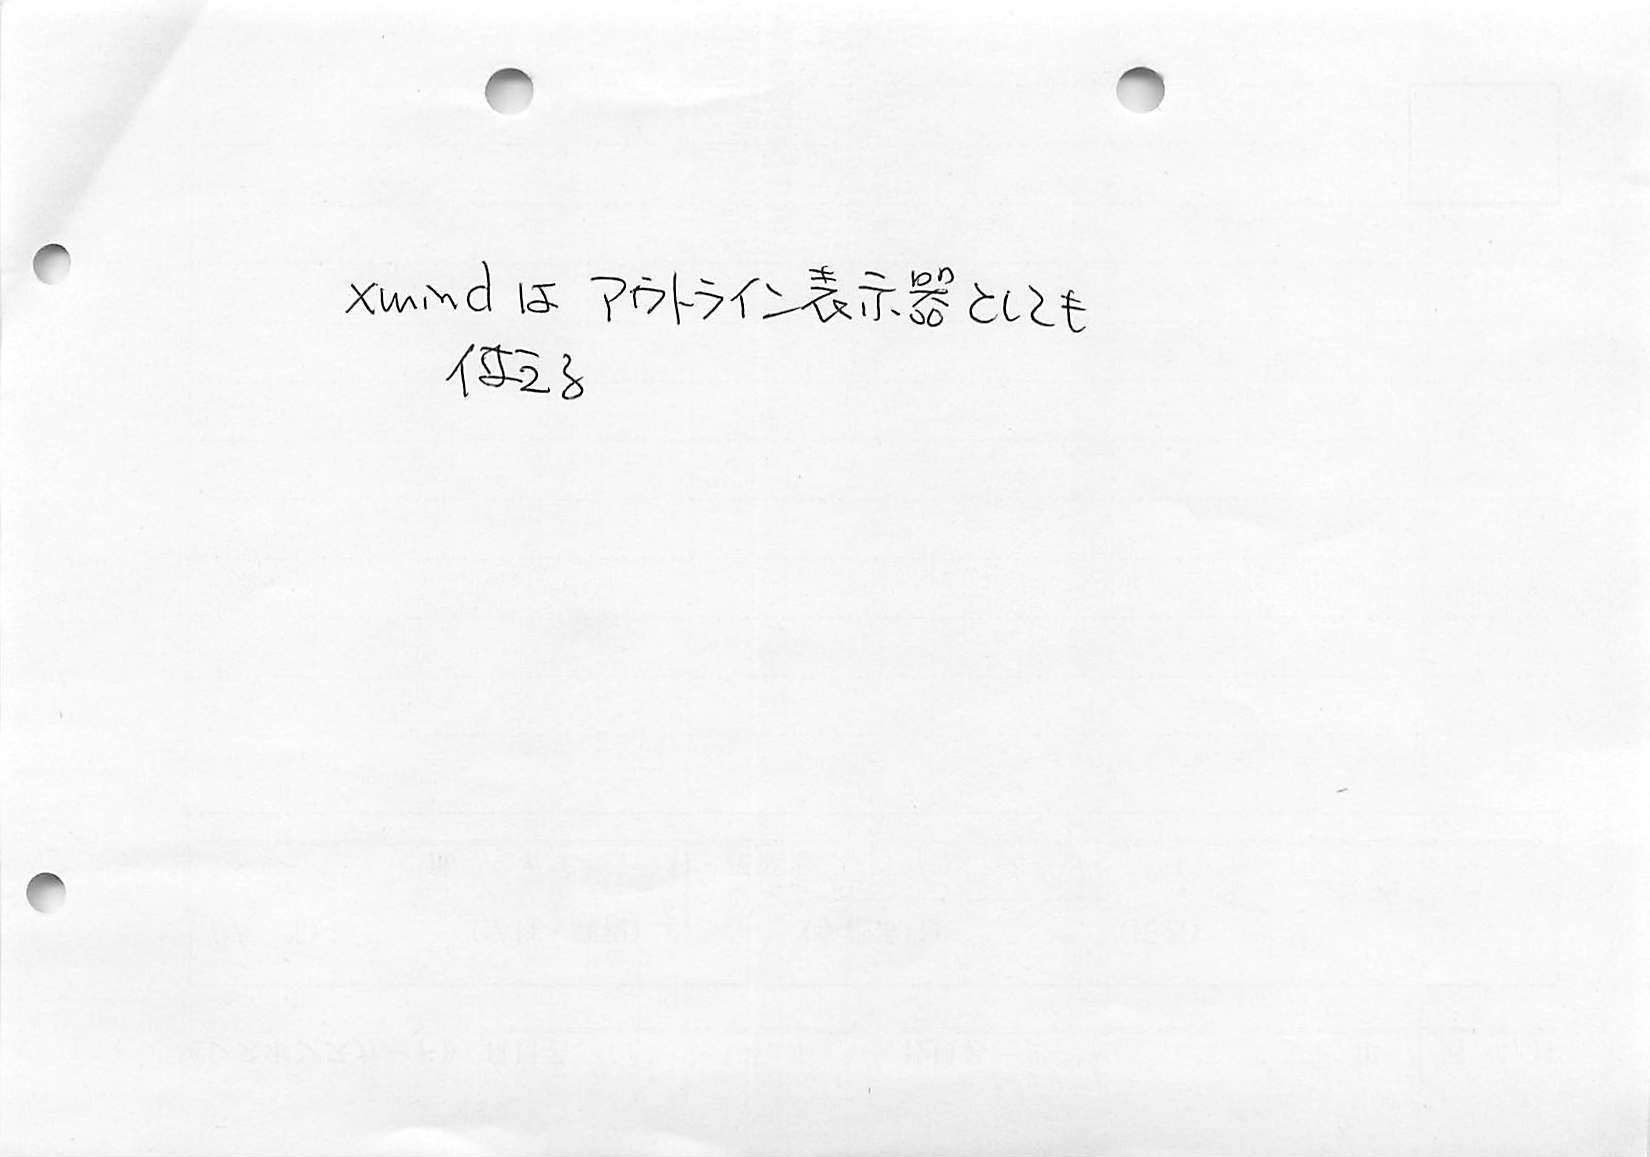 xmindは アウトライン表示器としても
使える